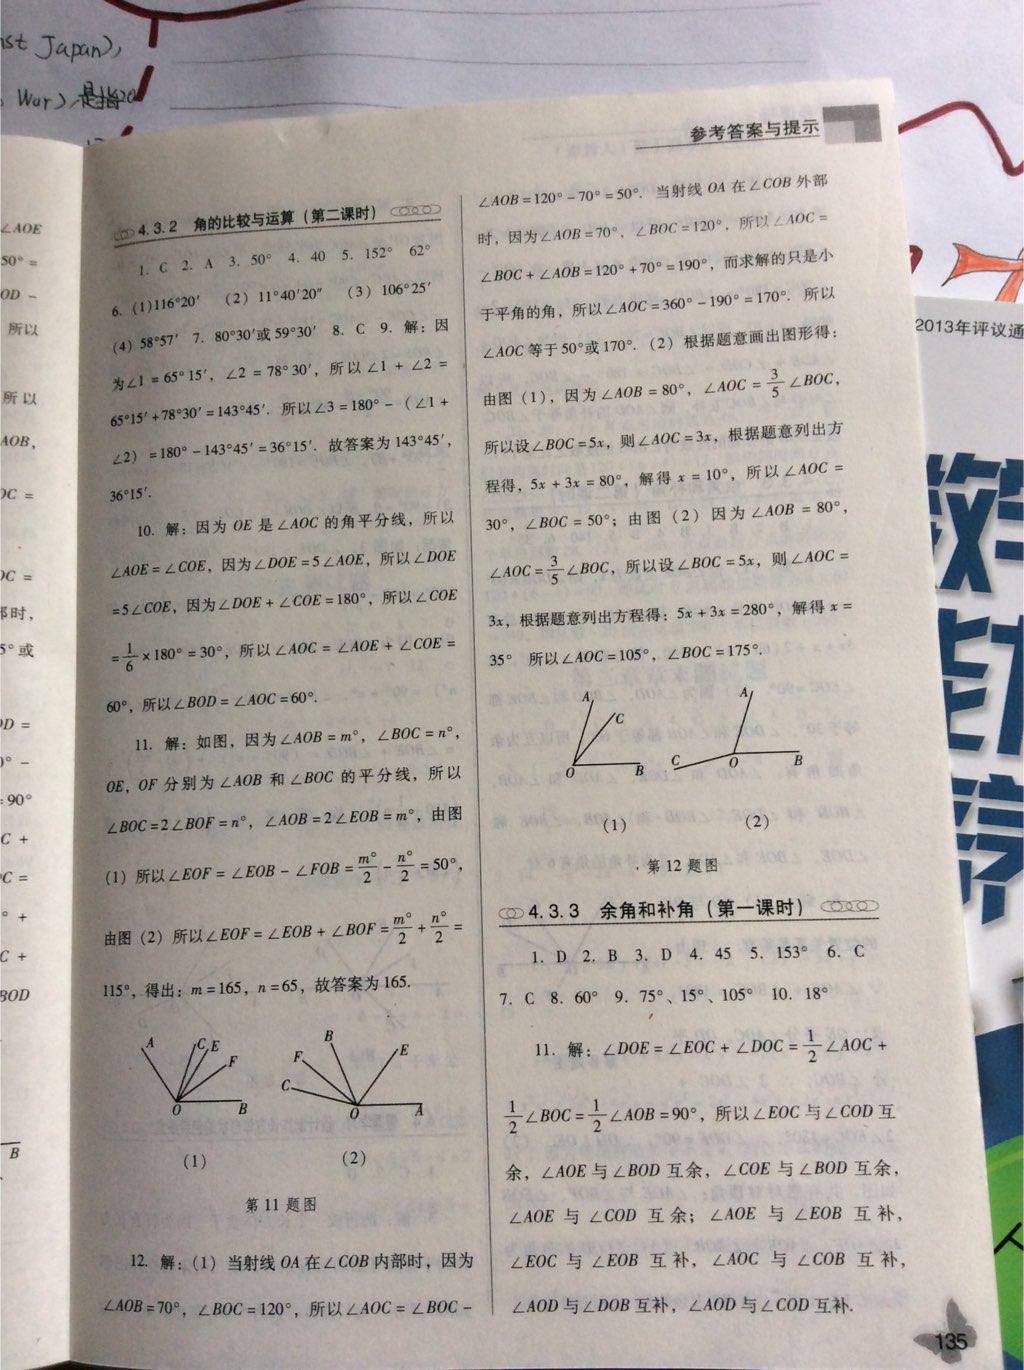 nst Japan),
War), 是指20
参考答案与提示
∠AOE
50° =
OD -
所以
所以
AOB,
OC =
OC =
部时,
5°或
OD =
0° -
= 90°
C +
OC =
° +
C +
BOD
B
4.3.2 角的比较与运算(第二课时)
1. C 2. A 3. 50° 4. 40 5. 152° 62°
6. (1)116°20′ (2) 11°40′20″ (3) 106°25′
(4) 58°57′ 7. 80°30′或59°30′ 8. C 9. 解:因
为∠1 = 65°15′, ∠2 = 78°30′, 所以∠1 + ∠2 =
65°15′+78°30′=143°45′. 所以∠3 = 180° - (∠1 +
∠2) = 180° - 143°45′ = 36°15′. 故答案为143°45′,
36°15′.
10. 解:因为 OE 是∠AOC 的角平分线,所以
∠AOE = ∠COE, 因为∠DOE = 5∠AOE, 所以∠DOE
= 5∠COE, 因为∠DOE + ∠COE = 180°, 所以∠COE
= 1/6 × 180° = 30°, 所以∠AOC = ∠AOE + ∠COE =
60°, 所以∠BOD = ∠AOC = 60°.
11. 解:如图,因为∠AOB = m°, ∠BOC = n°,
OE, OF 分别为∠AOB 和∠BOC 的平分线,所以
∠BOC = 2∠BOF = n°, ∠AOB = 2∠EOB = m°, 由图
(1) 所以∠EOF = ∠EOB - ∠FOB = m°/2 - n°/2 = 50°,
由图(2)所以∠EOF = ∠EOB + ∠BOF = m°/2 + n°/2 =
115°, 得出:m = 165, n = 65, 故答案为165.
A C E F O B
B F E C O A
(1) (2)
第11题图
12. 解:(1) 当射线 OA 在∠COB 内部时,因为
∠AOB = 70°, ∠BOC = 120°, 所以∠AOC = ∠BOC -
∠AOB = 120° - 70° = 50°. 当射线 OA 在∠COB 外部
时,因为∠AOB = 70°, ∠BOC = 120°, 所以∠AOC =
∠BOC + ∠AOB = 120° + 70° = 190°, 而求解的只是小
于平角的角,所以∠AOC = 360° - 190° = 170°. 所以
∠AOC 等于50°或170°. (2) 根据题意画出图形得:
由图(1), 因为∠AOB = 80°, ∠AOC = 3/5 ∠BOC,
所以设∠BOC = 5x, 则∠AOC = 3x, 根据题意列出方
程得, 5x + 3x = 80°, 解得 x = 10°, 所以∠AOC =
30°, ∠BOC = 50°; 由图(2) 因为∠AOB = 80°,
∠AOC = 3/5 ∠BOC, 所以设∠BOC = 5x, 则∠AOC =
3x, 根据题意列出方程得:5x + 3x = 280°, 解得 x =
35° 所以∠AOC = 105°, ∠BOC = 175°.
A C O B
A C O B
(1) (2)
第12题图
4.3.3 余角和补角(第一课时)
1. D 2. B 3. D 4. 45 5. 153° 6. C
7. C 8. 60° 9. 75°、15°、105° 10. 18°
11. 解:∠DOE = ∠EOC + ∠DOC = 1/2 ∠AOC +
1/2 ∠BOC = 1/2 ∠AOB = 90°, 所以∠EOC 与∠COD 互
余, ∠AOE 与∠BOD 互余, ∠COE 与∠BOD 互余,
∠AOE 与∠COD 互余; ∠AOE 与∠EOB 互补,
∠EOC 与∠EOB 互补, ∠AOC 与∠COB 互补,
∠AOD 与∠DOB 互补, ∠AOD 与∠COD 互补.
135
2013年评议通